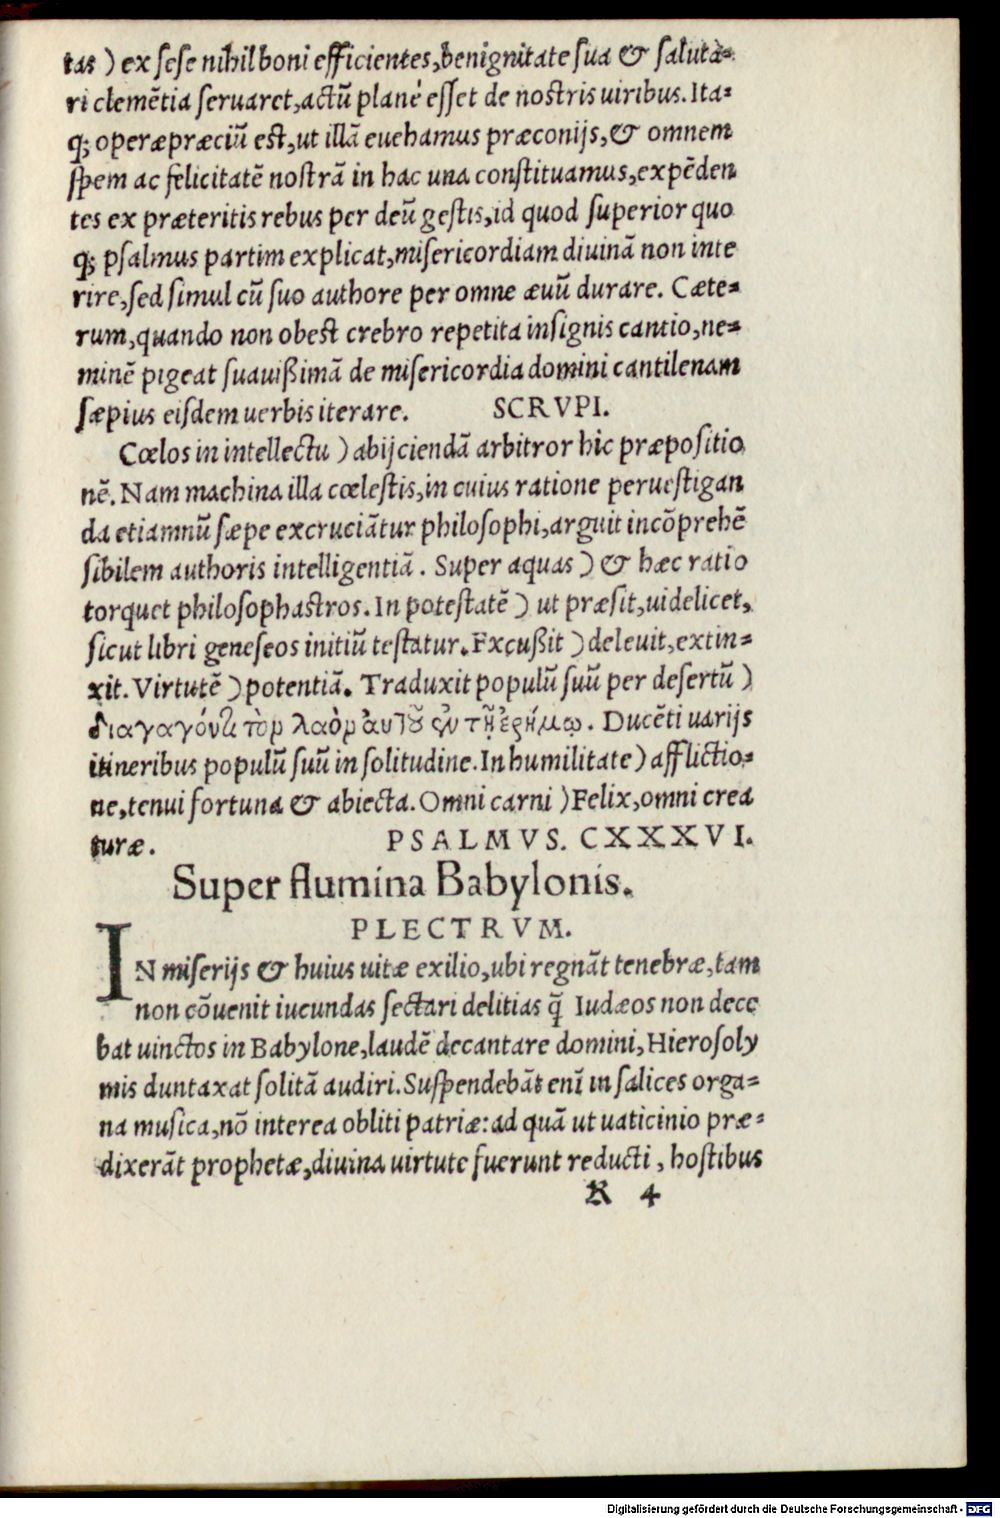 tas) ex sese nihil boni efficientes, benignitate sua & saluta=
ri clemẽtia seruaret, actũ planè esset de nostris uiribus. Ita=
q; operæpræciũ est, ut illã euehamus præconijs, & omnem
spem ac felicitatẽ nostrã in hac una constituamus, expẽden
tes ex præteritis rebus per deũ gestis, id quod superior quo
q; psalmus partim explicat, misericordiam diuinã non inte
rire, sed simul cũ suo authore per omne æuũ durare. Cæte=
rum, quando non obest crebro repetita insignis cantio, ne=
minẽ pigeat suauißimã de misericordia domini cantilenam
sæpius eisdem uerbis iterare. SCRVPI.
Cœlos in intellectu) abijciendã arbitror hic præpositio
nẽ. Nam machina illa cœlestis, in cuius ratione peruestigan
da etiamnũ sæpe excruciãtur philosophi, arguit incõprehẽ
sibilem authoris intelligentiã. Super aquas) & hæc ratio
torquet philosophastros. In potestatẽ) ut præsit, uidelicet,
sicut libri geneseos initiũ testatur. Excußit) deleuit, extin=
xit. Virtutẽ) potentiã. Traduxit populũ suũ per desertũ)
διαγαγόντι τὸν λαὸν ἀυτοῦ ἐν τῇ ἐρήμῳ. Ducẽti uarijs
itineribus populũ suũ in solitudine. In humilitate) afflictio=
ne, tenui fortuna & abiecta. Omni carni) Felix, omni crea
turæ. PSALMVS. CXXXVI.
Super flumina Babylonis.
PLECTRVM.
IN miserijs & huius uitæ exilio, ubi regnãt tenebræ, tam
non cõuenit iucundas sectari delitias q̃ Iudæos non dece
bat uinctos in Babylone, laudẽ decantare domini, Hierosoly
mis duntaxat solitã audiri. Suspendebãt enĩ in salices orga=
na musica, nõ interea obliti patriæ: ad quã ut uaticinio præ=
dixerãt prophetæ, diuina uirtute fuerunt reducti, hostibus
R 4
Digitalisierung gefördert durch die Deutsche Forschungsgemeinschaft - DFG